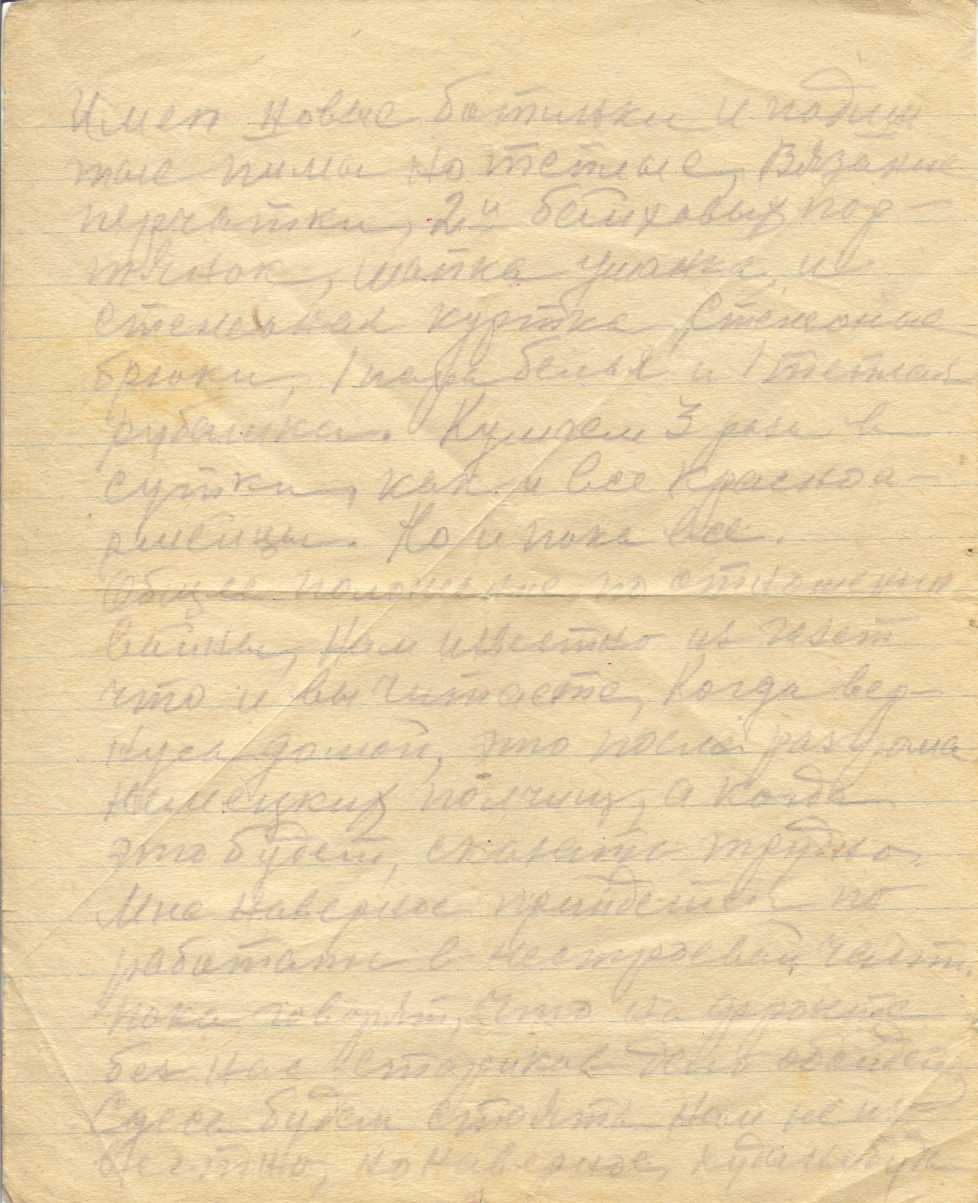 Имею новые ботинки и подши
тые пимы но теплые, Вязаные
перчатки, 2е байховых пор-
тянок, шапка ушанка, и
стеженая куртка, Стеженые
брюки, 1 пара белья и 1 теплая
рубашка. Кушаем 3 раза в
сутки, как и все красноа-
рмейцы. Но и пока все.
Общее положение по отношению
войны, нам известно из газет
что и вы читаете, Когда вер-
нусь домой, это после разгрома
немецких полчищ, а когда
это будет, сказать трудно.
Мне наверное прийдется по
работать в нестроевой части,
пока говорят, что на фронте
без нас стариков дело обойдется
Сдесь будем стоять нам не из-
вестно, но наверное,